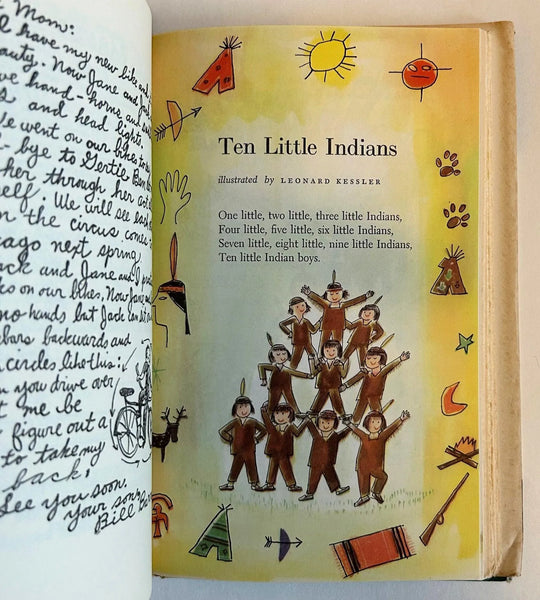 Mom:
I have my new bike and
beauty. Now Jane and
hand-horn and
and head lights
We went on our bikes to
bye to Gertie
her through her
self; We will see
the circus comes
next spring
Jack and Jane and I
on our bikes. Now Jane
no hands but Jack can
bars backwards and
circles like this:
you drive over
me be
figure out a
to take my
back!
See you soon.
Your son,
Bill
Ten Little Indians
illustrated by LEONARD KESSLER
One little, two little, three little Indians,
Four little, five little, six little Indians,
Seven little, eight little, nine little Indians,
Ten little Indian boys.